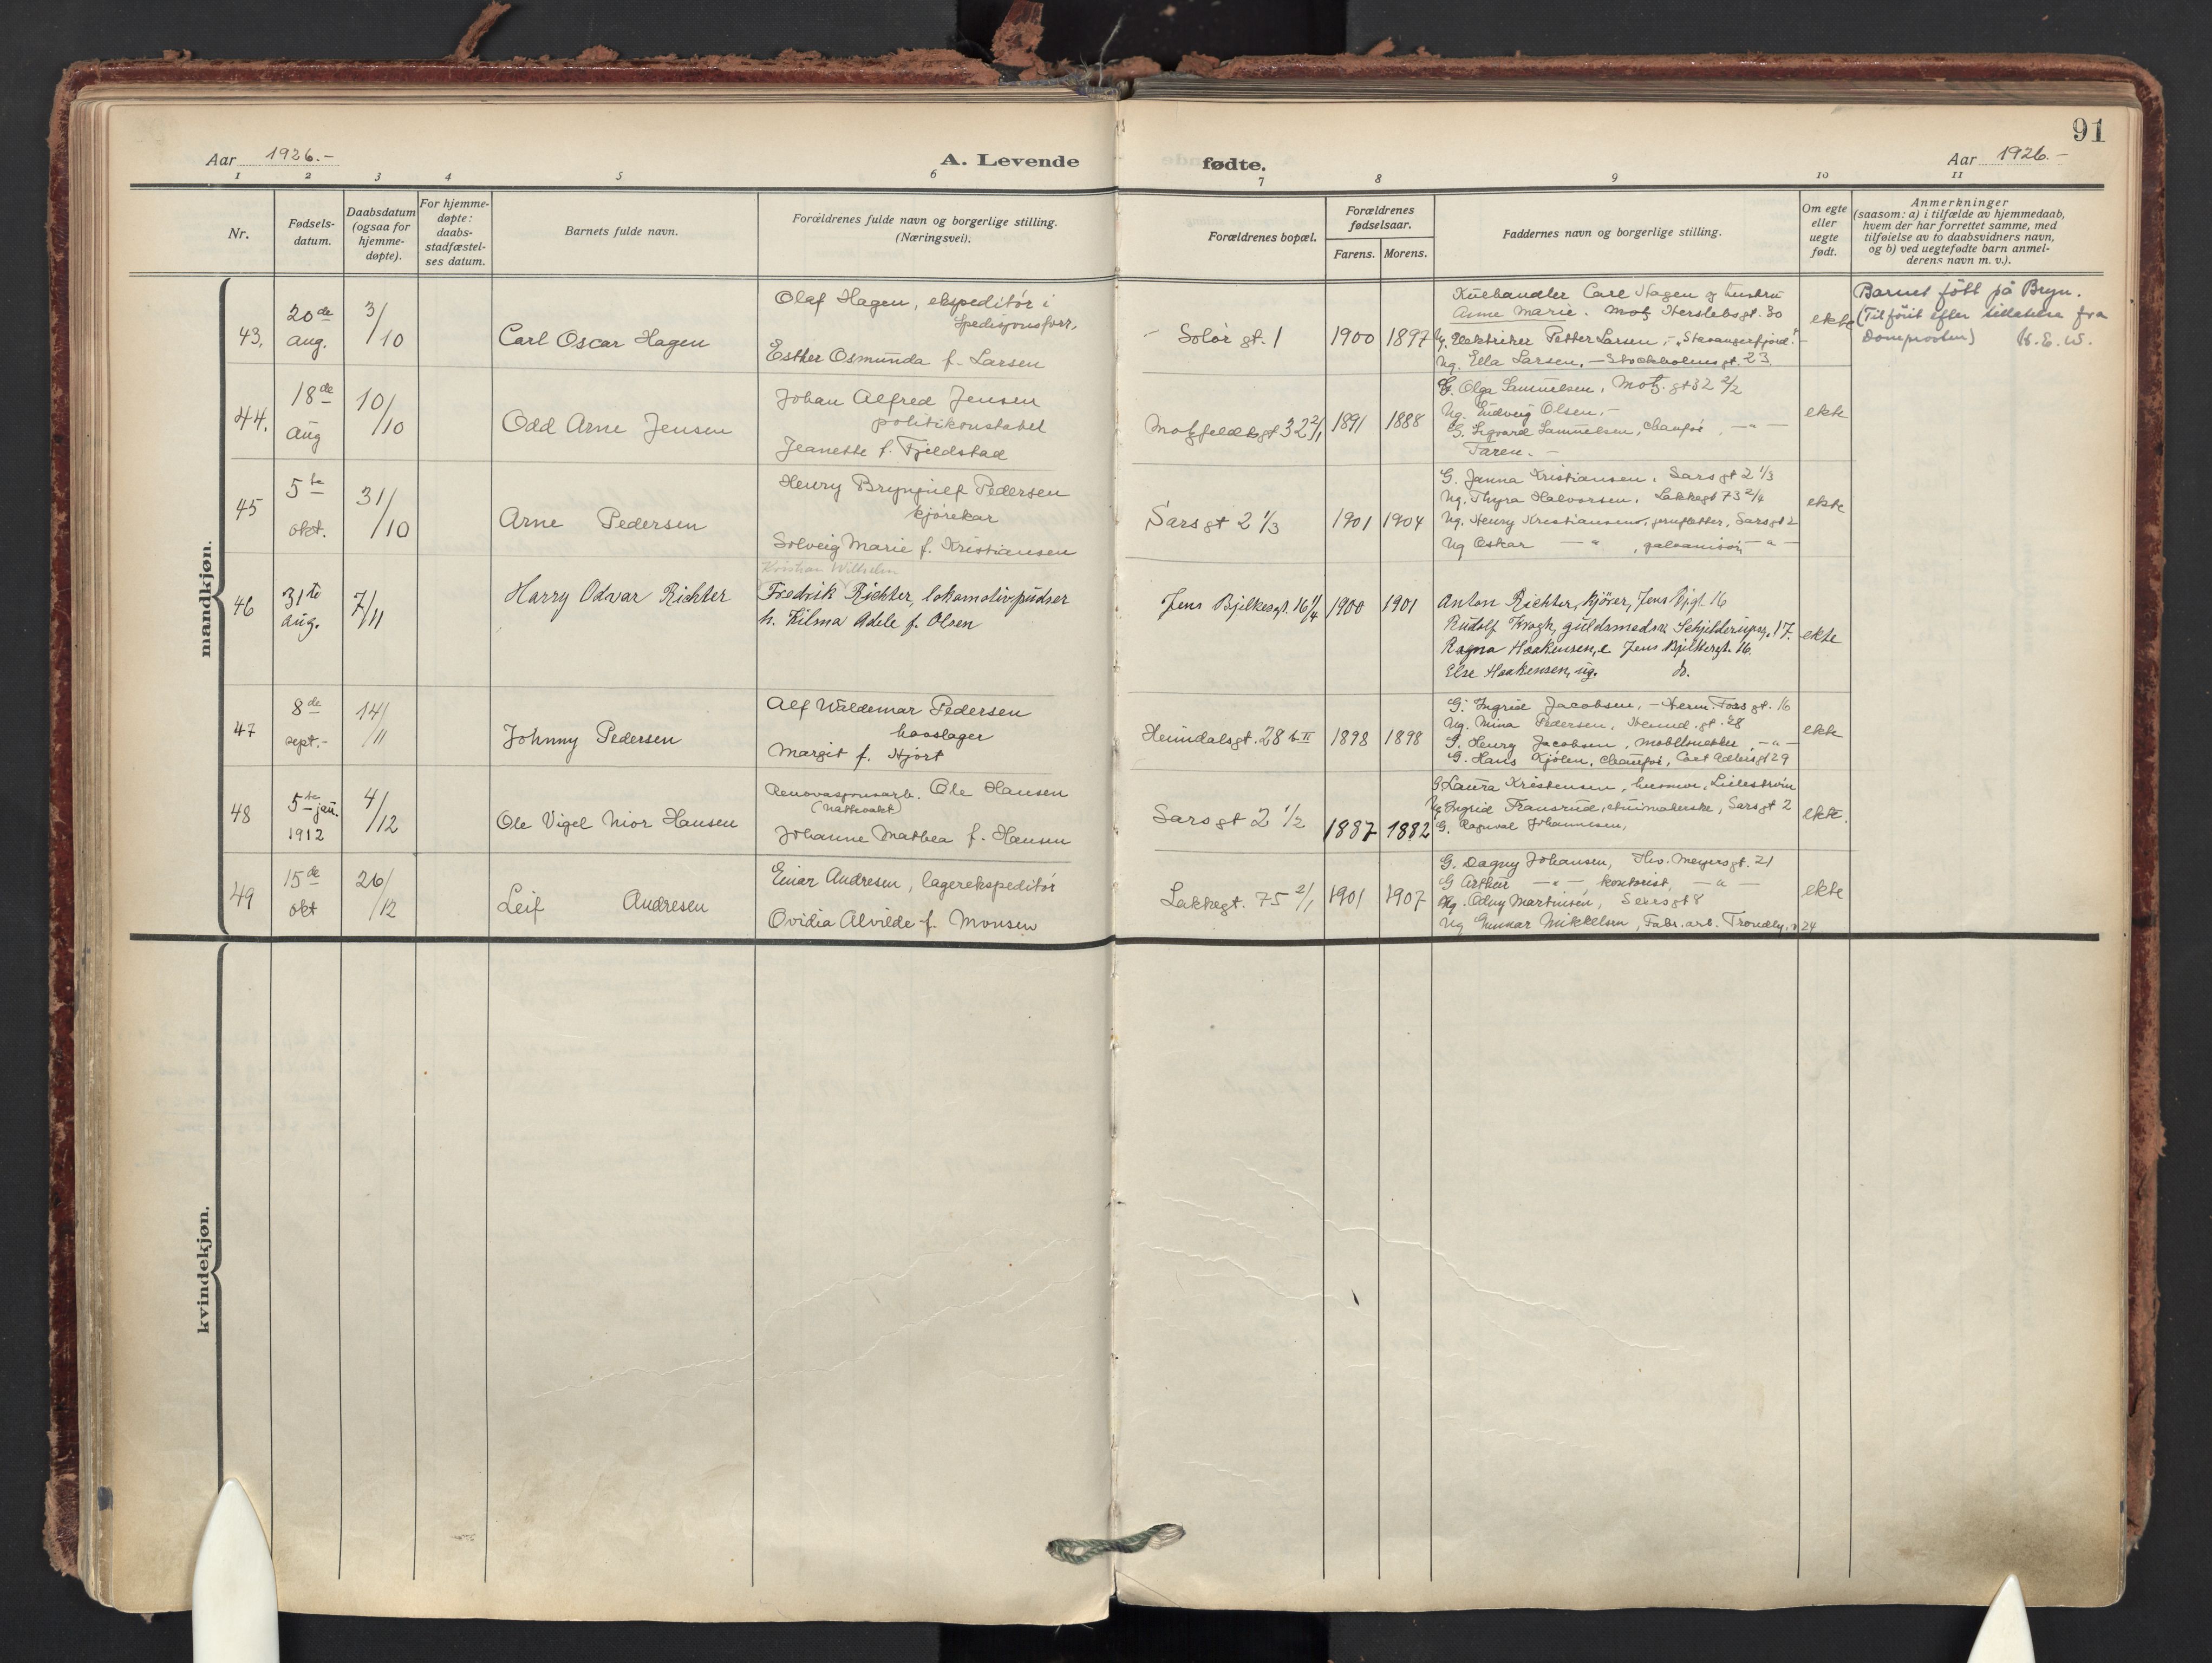 91
Aar 1926.-
A. Levende
fødte.
Aar 1926.-
1 2 3 4 5 6 7 8 9 10 11
Nr.
Fødsels-
datum.
Daabsdatum
(ogsaa for
hjemme-
døpte).
For hjemme-
døpte:
daabs-
stadfæstel-
ses datum.
Barnets fulde navn.
Forældrenes fulde navn og borgerlige stilling.
(Næringsvei).
Forældrenes bopæl.
Forældrenes
fødselsaar.
Farens. Morens.
Faddernes navn og borgerlige stilling.
Om egte
eller
uegte
født.
Anmerkninger
(saasom: a) i tilfælde av hjemmedaab,
hvem der har forrettet samme, med
tilføielse av to daabsvidners navn,
og b) ved uegtefødte barn anmel-
derens navn m. v.).
mandkjøn.
43.
20de
aug.
3/10
Carl Oscar Hagen
Olaf Hagen, ekspeditør i
Spedisjonsforr.
Esther Osmunda f. Larsen
Solør gt. 1
1900 1897
Carl Hagen og hustru
Anne Marie. Herslebsgt. 30
Elektriker Petter Larsen, "Stavangerfjord"
Ug. Ella Larsen, Stockholmsgt. 23
ekte
Barnet født på Bryn.
(Tilført efter fra
Domprosten) K. E. W.
44.
18de
aug
10/10
Odd Arne Jensen
Johan Alfred Jensen
politikonstabel
Jeanette f. Fjeldstad
Motzfeldtsgt 32 2/1
1891 1888
G. Olga Samuelsen, Motz.gt 32 2/2
Ug. Olsen,
G. Sigvard Samuelsen, -"-
Faren. -
ekte
45
5te
okt.
31/10
Arne Pedersen
Henry Brynjulf Pedersen
kjørekar
Solveig Marie f. Kristiansen
Sarsgt 2 1/3
1901 1904
G. Janna Kristiansen, Sarsgt 2 1/3
Ug. Thyra Halvorsen, Lakkegt 73 2/4
Ug. Henry Kristiansen, Sarsgt 2
Ug Oskar -"-, -"-
ekte
46
31te
aug.
7/11
Harry Odvar Richter
Kristian Wilhelm
Fredrik Richter, lokomotivpudser
h. Hilma Adele f. Olsen
Jens Bjelkesgt. 16 11/4
1900 1901
Anton Richter, kjører, Jens Bj.gt. 16
Rudolf Krogh, guldsmedsv. Schjelderupsg. 17.
Ragna Haakensen, e Jens Bjelkesgt. 16.
Else Haakensen, ug. do.
ekte
47
8de
sept.-
14/11
Johnny Pedersen
Alf Waldemar Pedersen
hovslager
Margit f. Hjort
Heimdalsgt. 28 b II
1898 1898
G. Ingrid Jacobsen, - Herm. Fossgt. 16
Ug. Mina Pedersen, Heimd.gt. 28
G. Henry Jacobsen, -"-
G. Hans Kjølen, Cort Adelersgt 29
ekte
48
5te jan.
1912
4/12
Ole Vigel Mor Hansen
Renovasjonsarb. Ole Hansen
(nattevakt)
Johanne Mathea f. Hansen
Sarsgt 2 1/2
1887 1882
G Laura Kristensen, husmor, Lillestrøm
Ug Ingrid Fransrud, etuimakerske, Sarsgt 2
G. Johannesen,
ekte.
49
15de
okt
26/12
Leif Andresen
Einar Andresen, lagerekspeditør
Ovidia Alvilde f. Monsen
Lakkegt. 75 2/1
1901 1907
G. Dagny Johansen, Thv. Meyersgt. 21
G Arthur -"-, kontorist, -"-
Ug. Odny Martinsen, 8
Ug Gunnar Mikkelsen, Fabr.arb. 24
ekte
kvindekjøn.